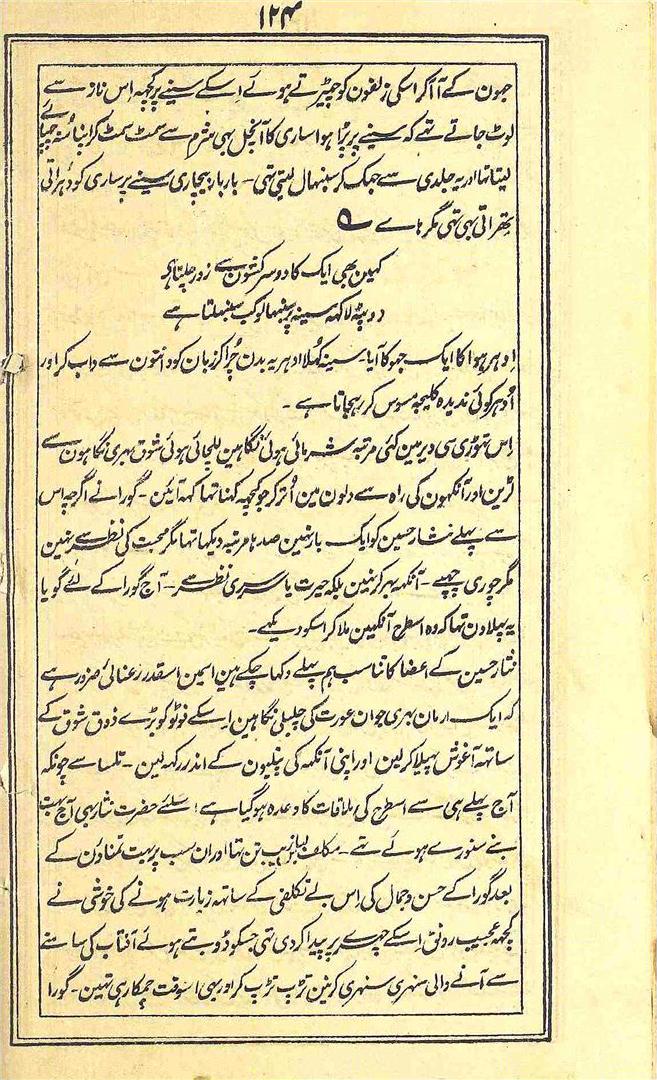 ۱۲۴
جھون کے آ آ کر اسکی زلفون کو چھیڑتے ہوئے اِسکے سینے پر کچھہ اِس ناز سے
لوٹ جاتے تھے کہ سینے پر پڑا ہوا ساری کا آنچل بھی شرم سے سمٹ سمٹ کر اپنا مُنہ چھپائے
لیتا تھا اور یہ جلدی سے جھک کر سنبھال لیتی تھی - بار بار بیچاری سینے پر ساری کو دُہراتی
تھراتی بھی تھی مگر ہاے ؎
کہین بھی ایک کا دو سرکشون سے زور چلتا ہی
دوپٹہ لاکھہ سینہ پر سنبھالو کب سنبھلتا ہے
اِدھر ہوا کا ایک جھوکا آیا - سینہ کھلا ادھر یہ بدن چُرا کر زبان کو دانتون سے داب کر اور
اُدھر کوئی ندیدہ کلیجہ مسوس کر رہجاتا ہے -
اِس تھوڑی سی دیر مین کئی مرتبہ شرمائی ہوئی نگاہین للچائی ہوئی شوق بھری نگاہون سے
لڑین اور آنکھون کی راہ سے دلون مین اُتر کر جو کچھہ کہنا تھا کہہ آئین - گورا نے اگرچہ اِس
سے پہلے نثار حسین کو ایک بار نہین صدہا مرتبہ دیکھا تھا مگر محبت کی نظر سے نہین
مگر چوری چھپے - آنکھہ بھر کر نہین بلکہ حیرت یا سرسری نظر سے - آج گورا کے لئے گویا
یہ پہلا دن تھا کہ وہ اسطرح آنکھین ملا کر اسکو دیکھے -
نثار حسین کے اعضا کا تناسب ہم پہلے دکھا چکے ہین اسمین اسقدر رعنائی ضرور ہے
کہ ایک ارمان بھری جوان عورت کی چلبلی نگاہین اِسکے فوٹو کو بڑے ذوق شوق کے
ساتھہ آغوش پھیلا کر لین اور اپنی آنکھہ کی پتلیون کے اندر رکھہ لین - تلسا سے چونکہ
آج پہلے ہی سے اسطرح کی ملاقات کا وعدہ ہو گیا ہے اسلئے حضرت نثار بھی آج بہت
بنے سنورے ہوئے تھے - مکلف لباس زیب تن تھا اور ان سب پر بہت تمناون کے
بعد گورا کے حسن و جمال کی اِس بے تکلفی کے ساتھہ زیارت ہونے کی خوشی نے
کچھہ عجیب رونق اِسکے چہرے پر پیدا کر دی تھی جسکو ڈوبتے ہوئے آفتاب کی سامنے
سے آنے والی سنہری سنہری کرنین تڑپ تڑپ کر اور بھی اسوقت چمکا رہی تھین - گورا